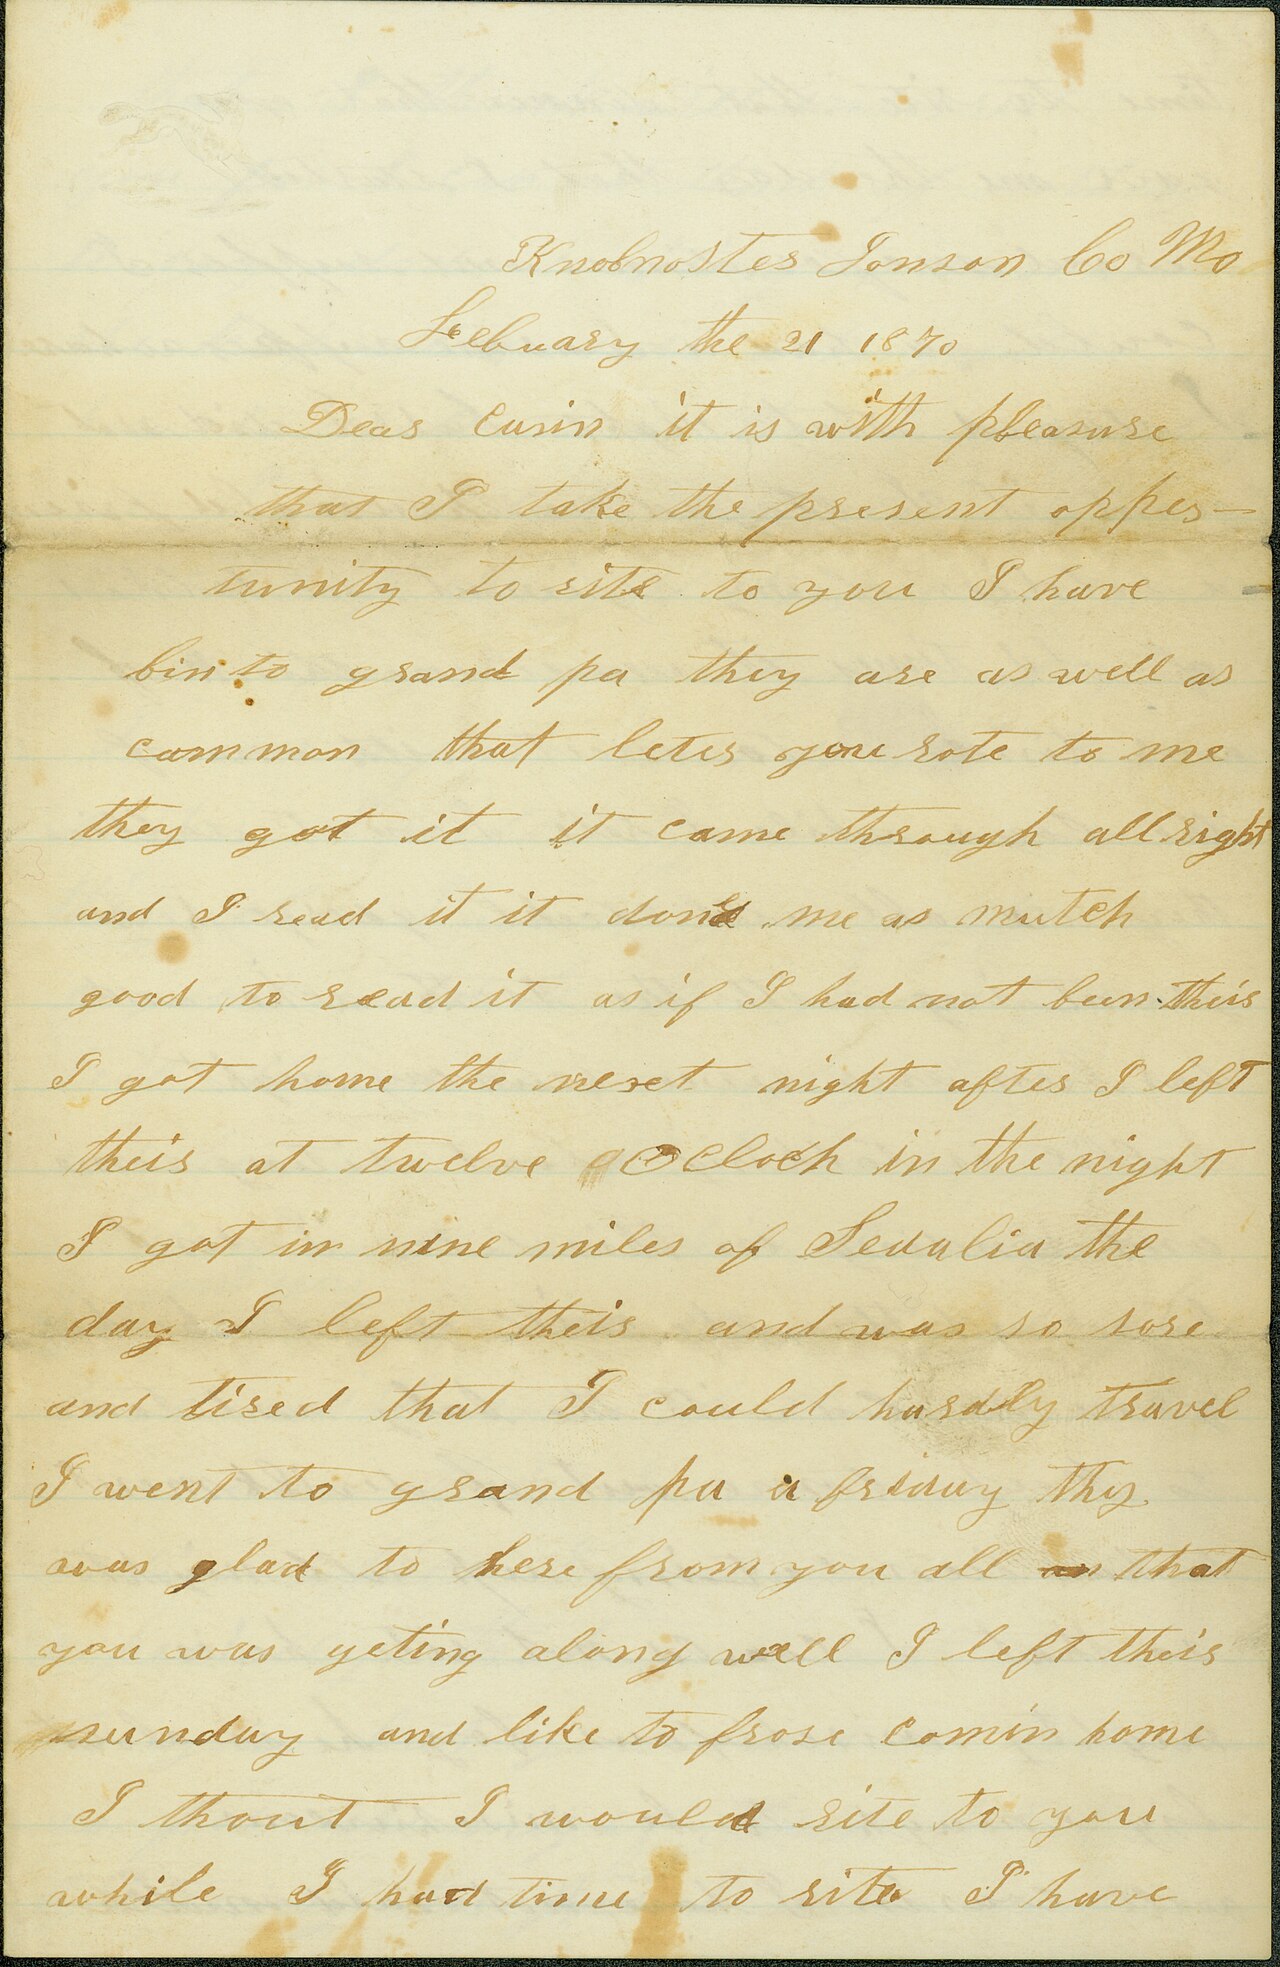 Knobnoster Jonson Co Mo
Febuary the 21 1870
Dear cusin it is with pleasure
that I take the present opper-
tunity to rite to you I have
bin to grand pa they are as well as
common that leter you rote to me
they got it it came through all right
and I read it it done me as mutch
good to read it as if I had not been their
I got home the next night after I left
their at twelve o clock in the night
I got in nine miles of Sedalia the
day I left their and was so sore
and tired that I could hardly travel
I went to grand pa a friday they
was glad to here from you all that
you was geting along well I left their
sunday and like to frose comin home
I thout I would rite to you
while I had time to rite I have